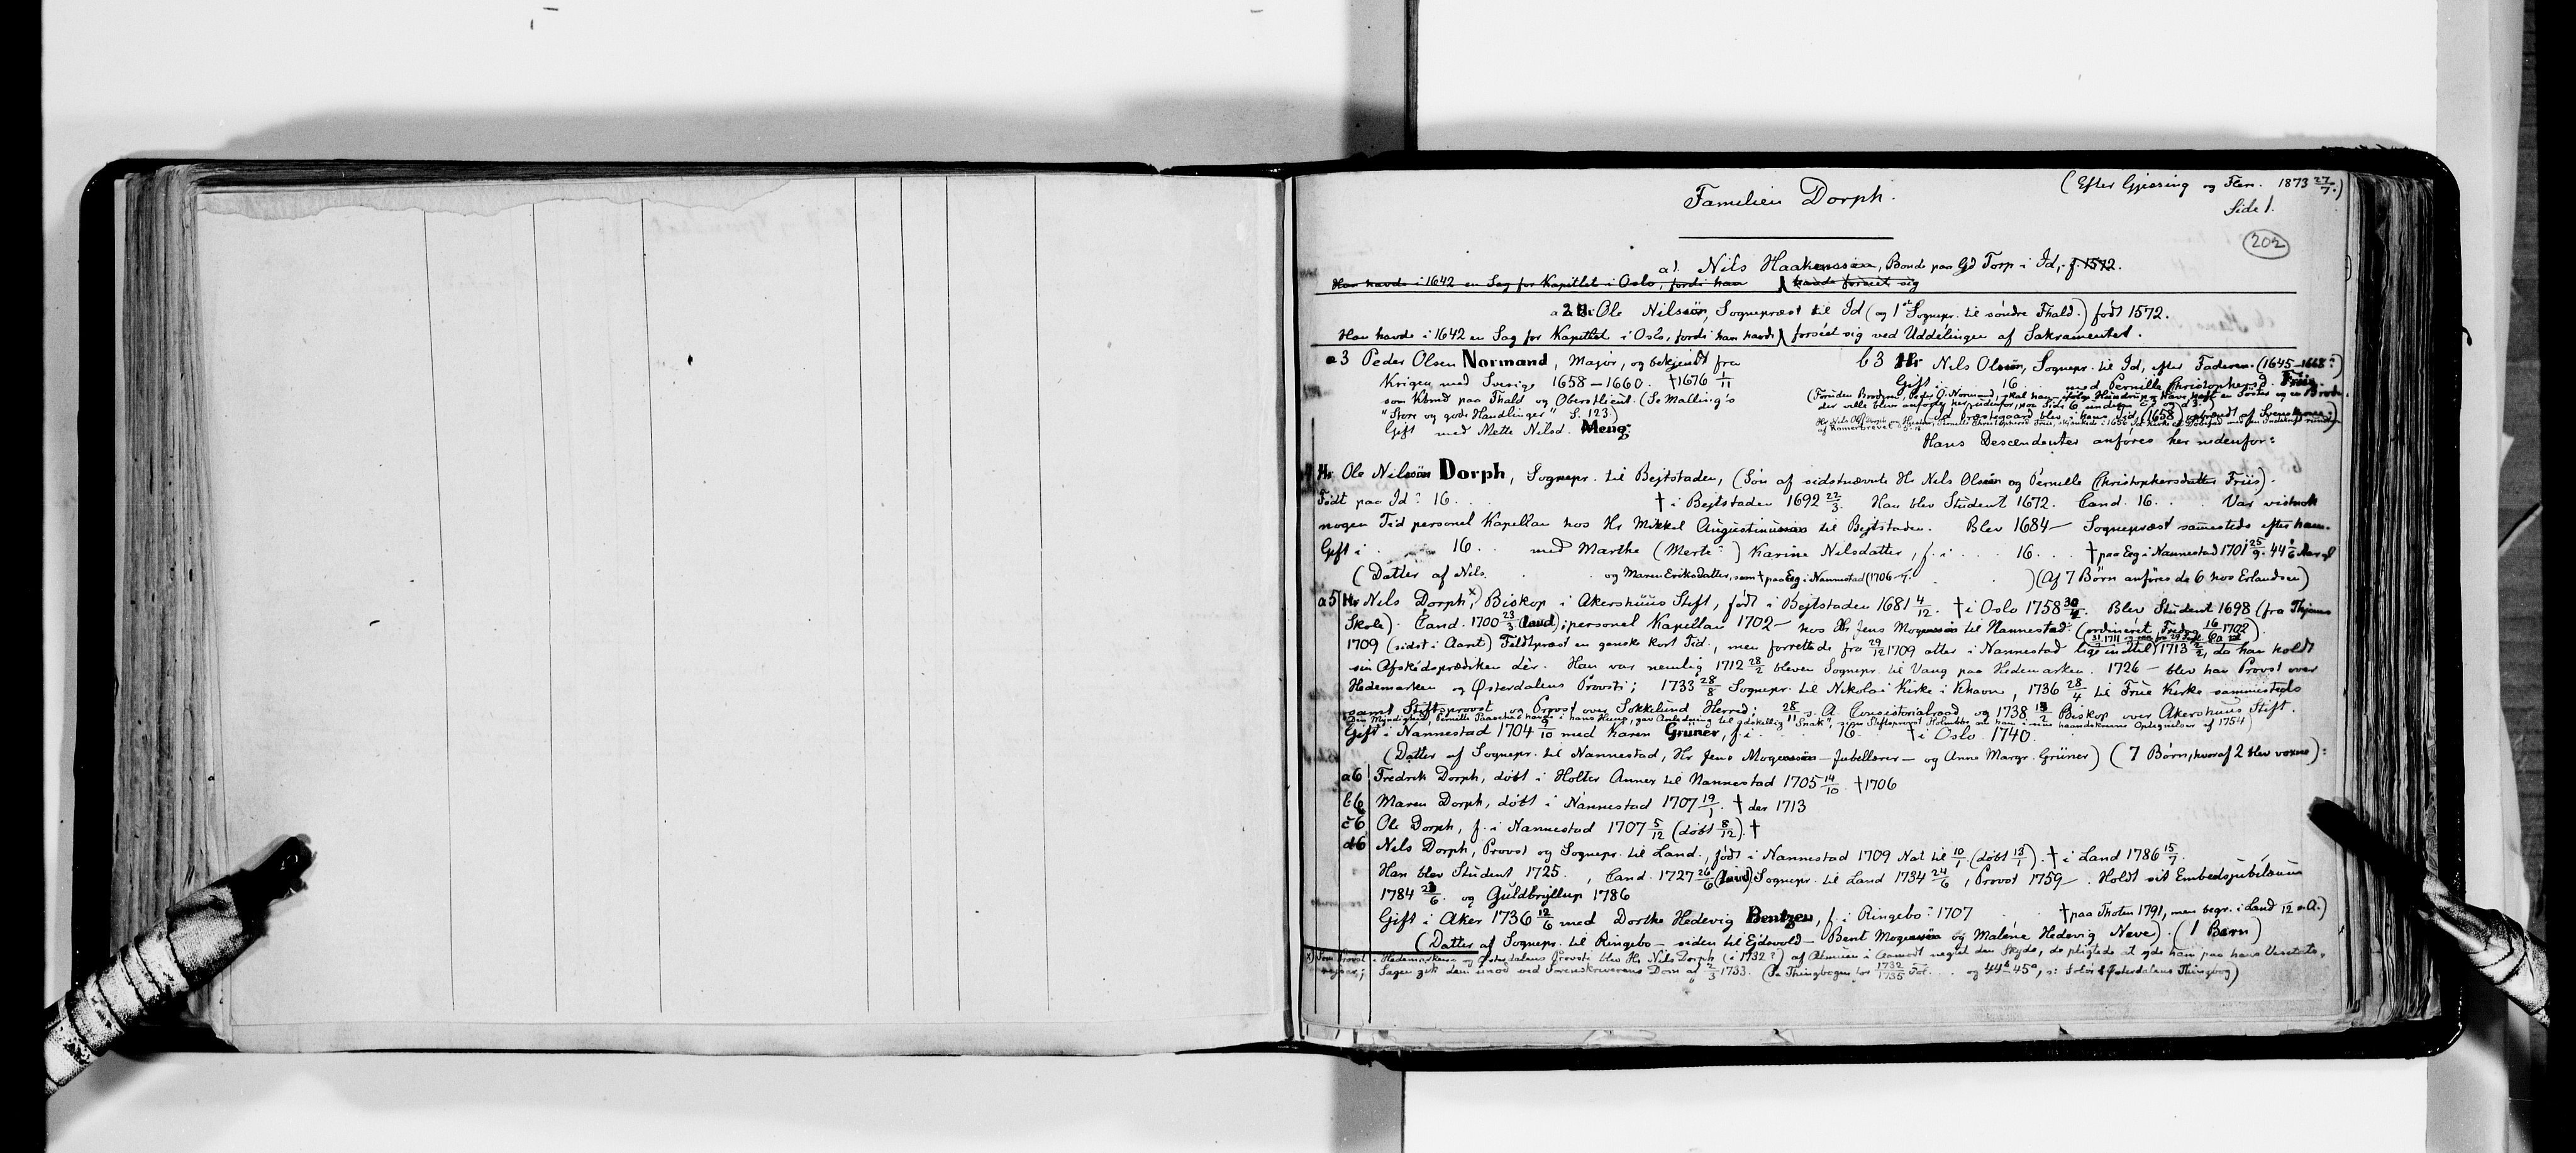 Familien Dorph.
(Efter Gjæsing og Flere. 1873 27/7.)
Side 1.
202
a1. Nils Haakenssøn, Bonde paa Gd Torp i Id, f. 1572.
Han havde i 1642 en Sag for Kapitlet i Oslo, fordi han havde forseet sig
a2 Hr. Ole Nilssön, Sognepræst til Id (og 1ste Sognepr. til søndre Fhald.) født 1572.
Han havde i 1642 en Sag for Kapitlet i Oslo, fordi han havde forseet sig ved Uddelingen af Sakramentet.
a3 Peder Olsen Normand, Major, og bekjendt fra
Krigen med Sverige 1658–1660. †1676 1/11
som Kbmd paa Fhald og Oberstlieut. (Se Malling's
"Store og gode Handlinger" S. 123.)
Gift med Mette Nilsd. Meng.
b3 Hr Nils Olssön, Sognepr. til Id, efter Faderen. (1645–1668?)
Gift i 16 med Pernille Christophersd. Friis.
(Foruden Broderen, Peder O. Normand, skal han have havt en Søster og en Broder
der ville blive anførte her nedenfor, paa Side 6 under c3 og d3.)
(Id Præstegaard blev, i hans Tid, (1658) opbrændt af Svenskerne.)
Hans Descendenter anføres her nedenfor:
4 Hr Ole Nilssön Dorph, Sognepr. til Bejtstaden, (Søn af sidstnævnte Hr Nils Olssön og Pernille Christophersdatter Friis).
Født paa Id? 16 . . † i Bejtstaden 1692 22/3. Han blev Student 1672. Cand. 16 . . Var vistnok
nogen Tid personel Kapellan hos Hr Mikkel Augustinussøn til Bejtstaden. Blev 1684 – Sognepræst sammesteds efter ham.
Gift i 16 . . med Marthe (Merte?) Karine Nilsdatter, f. i . . 16 . . † paa Eeg i Nannestad 1701 25/9. 44 1/6 Aar gl
(Datter af Nils . . og Maren Eriksdatter, som † paa Eeg i Nannestad (1706 ) (Af 7 Børn anføres de 6 hos Erlandsen)
a5 Hr Nils Dorph x), Biskop i Akershuus Stift, født i Bejtstaden 1681 4/12. † i Oslo 1758 30/. Blev Student 1698 (fra Thjems
Skole). Cand. 1700 23/3 (laud); personel Kapellan 1702 – hos Hr Jens Mogenssøn til Nannestad. (ordineret Fredag 16/ 1702).
1709 (sidst i Aaret) Feldtpræst en ganske kort Tid, men forrettede fra 29/12 1709 atter i Nannestad lige indtil 1713 2/2, da han holdt
sin Afskedsprædiken dér. Han var nemlig 1712 28/2 bleven Sognepr. til Vang paa Hedemarken. 1726 – blev han Provst over
Hedemarken og Østerdalens Provsti; 1733 28/8 Sognepr. til Nikolai Kirke i Khavn, 1736 28/4 til Frue Kirke sammesteds
samt Stiftsprovst og Provst over Sokkelund Herred; 28/11 s. A. Consistorialraad og 1738 13/2 Biskop over Akershuus Stift.
Gift i Nannestad 1704 9/10 med Karen Grüner, f. i 16 . † i Oslo 1740.
(Datter af Sognepr. til Nannestad, Hr Jens Mogenssøn – Jubellærer – og Anne Margr. Grüner) (7 Børn, hvoraf 2 blev voxne):
a6 Fredrik Dorph, døbt i Holter Annex til Nannestad 1705 14/10 †1706
b6 Maren Dorph, døbt i Nannestad 1707 19/1. † der 1713
c6 Ole Dorph, f. i Nannestad 1707 5/12 (døbt 8/12). †
d6 Nils Dorph, Provst og Sognepr. til Land, født i Nannestad 1709 Nat til 10/1 (døbt 13/1). † i Land 1786 15/7.
Han blev Student 1725. , Cand. 1727 26/6 (laud) Sognepr. til Land 1734 24/6, Provst 1759 – . Holdt sit Embedsjubilæum
1784 23/6. og Guldbryllup 1786
Gift i Aker 1736 12/6 med Dorthe Hedevig Bentzen, f. i Ringebo? 1707 † paa Thoten 1791, men begr. i Land /12 s.A.)
(Datter af Sognepr. til Ringebo – siden til Ejdsvold – Bent Mogenssøn og Malene Hedevig Neve). (1 Barn)
x) Som Provst i Hedemarkens og Østerdalens Provsti blev Hr Nils Dorph (i 1732?) af Almuen i Aamodt negtet den Skyds, de pligtede at yde ham paa hans Visitats-
rejser; Sagen gik dem imod ved Sorenskriverens Dom af 2/3 1733. (Se Thingbogen for 1732/1735 Fol. og 44b–45a, i Solør & Østerdalens Thingbog)